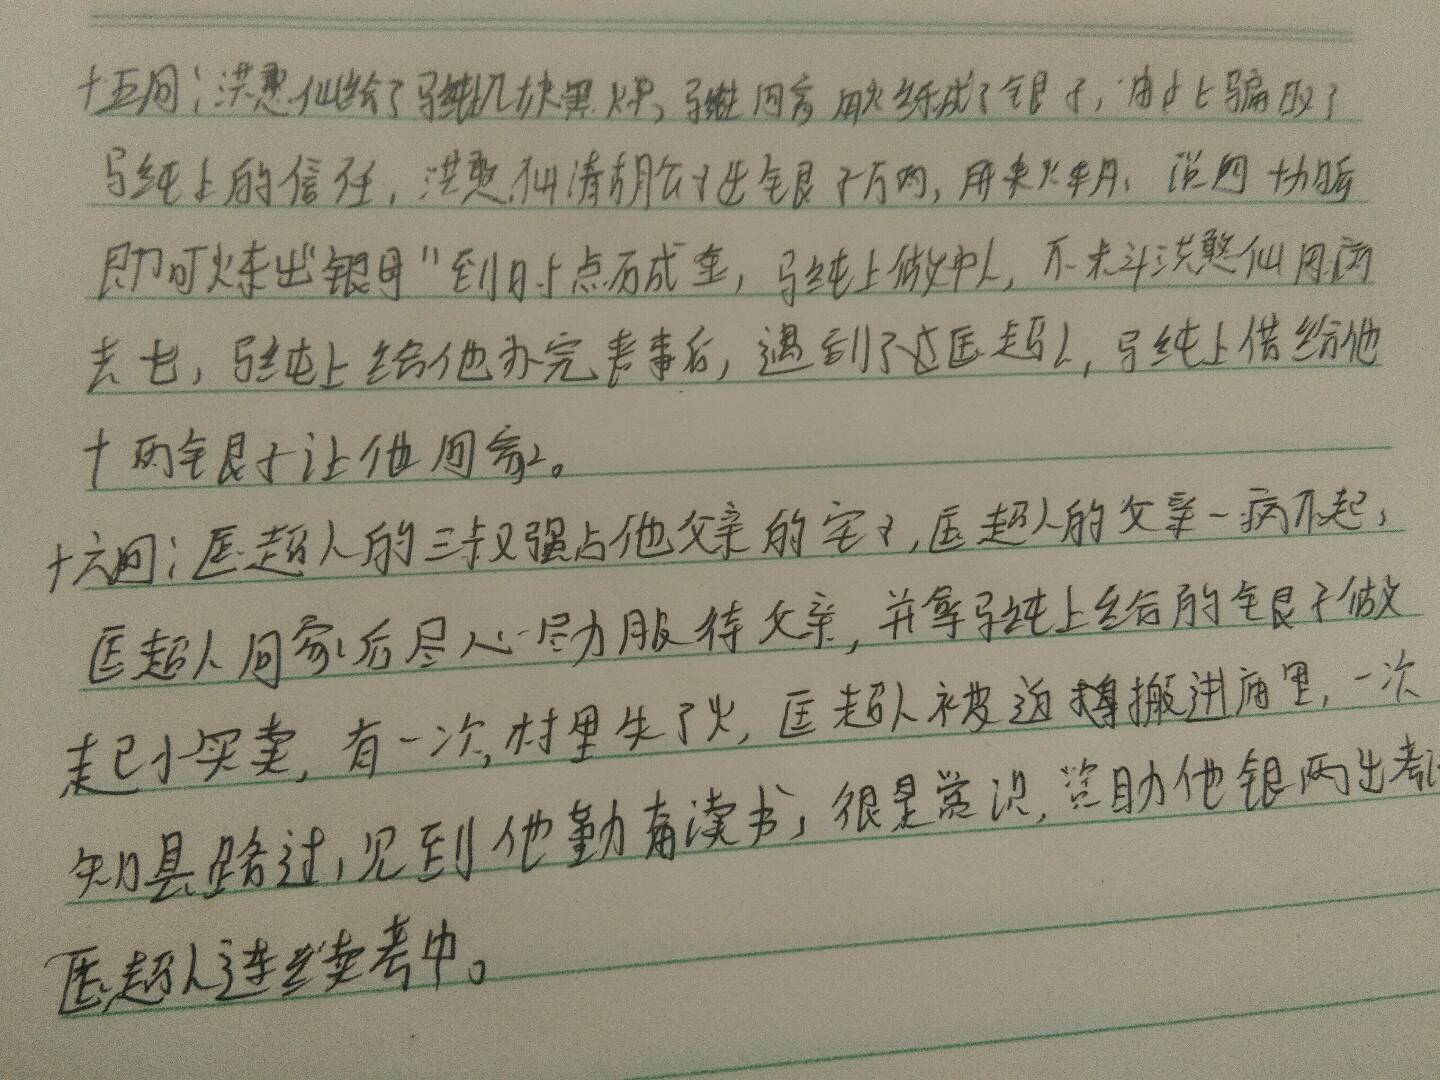 十五回：洪憨仙给了马纯几块黑煤，马纯回家用火练成了银子，由此骗取了
马纯上的信任，洪憨仙请胡公子出银子万两，用来火练丹，说四十功后
即可炼出“银母”到时点石成金，马纯上做中人，不未料洪憨仙因病
去世，马纯上给他办完丧事后，遇到了匡超人，马纯上借给他
十两银子让他回家。
十六回：匡超人的三叔强占他父亲的宅子，匡超人的父亲一病不起，
匡超人回家后尽心尽力服侍父亲，并拿马纯上给的银子做
起小买卖，有一次，村里失了火，匡超人被迫搬进庙里，一次
知县路过，见到他勤奋读书，很是赏识，资助他银两出考试
匡超人连续考中。